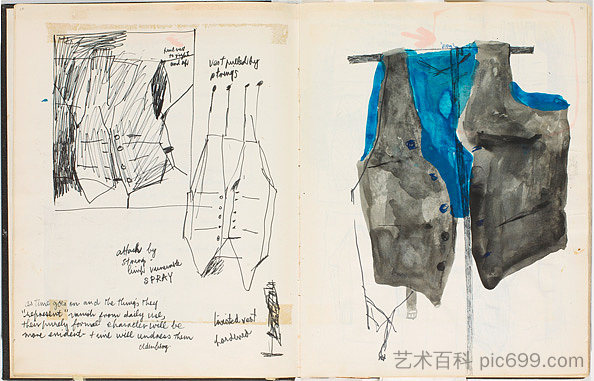 vest
to right
and up
vest pulled by
strings
attach by
string
limp vulnerable
SPRAY
as time goes on and the things they
"represent" vanish from daily use,
their purely formal character will be
more evident + time will undress them
Oldenburg
inverted vest
艺术百科 pic699.com